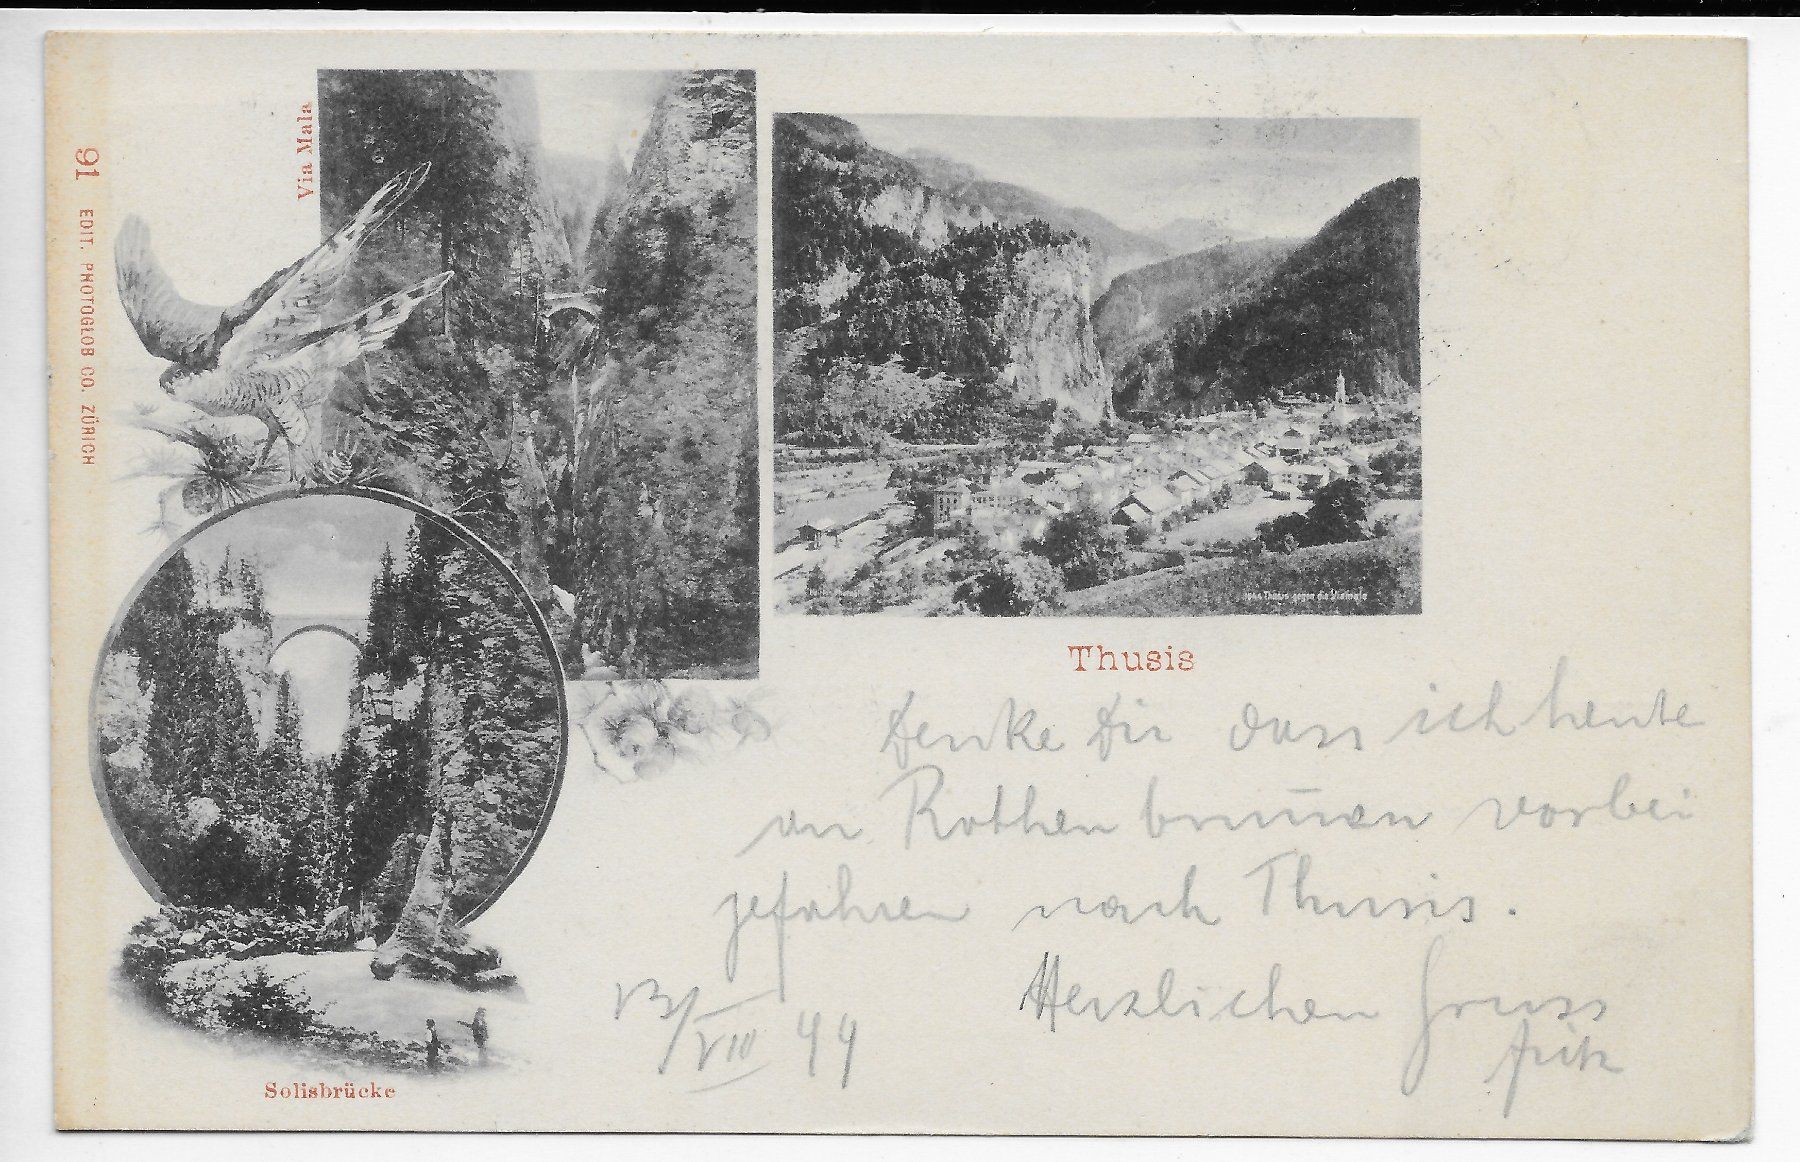 91 EDIT. PHOTOGLOB CO. ZÜRICH
Via Mala
1944 Thusis gegen die Viamala
Thusis
Denke Dir dass ich heute
an Rothenbrunnen vorbei
gefahren nach Thusis.
Herzlichen Gruss
Fritz
13/VIII 99
Solisbrücke